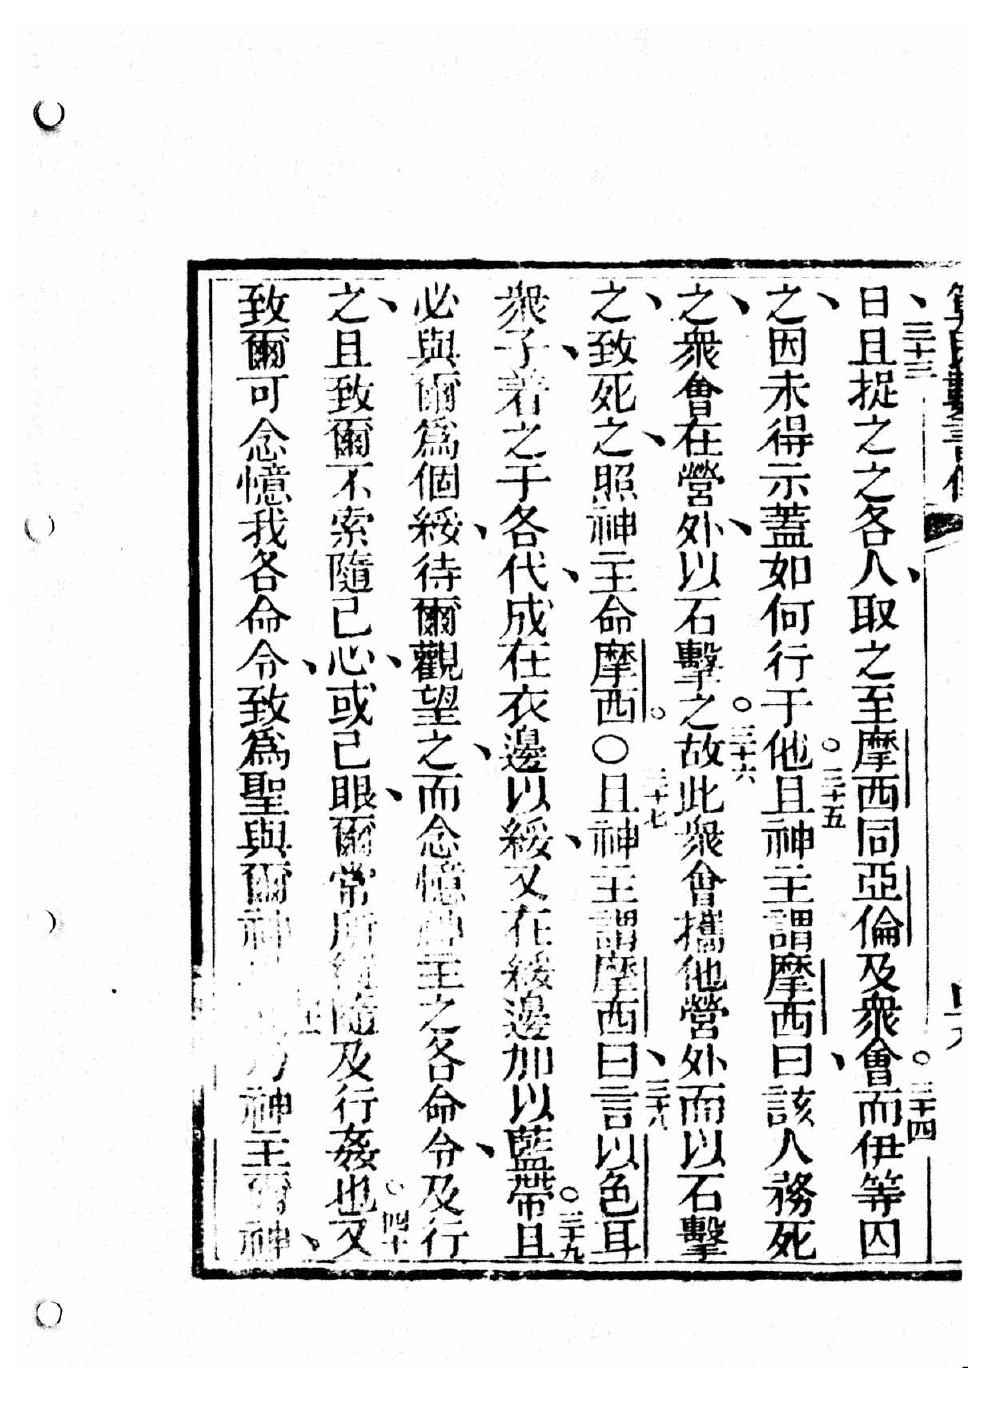 算民數書傳
日且捉之之各人取之至摩西同亞倫及衆會三十四而伊等囚
之因未得示蓋如何行于他三十五且神主謂摩西曰該人務死
之衆會在營外以石擊之三十六故此衆會攜他營外而以石擊
之致死之照神主命摩西○三十七且神主謂摩西曰三十八言以色耳
衆子着之于各代成在衣邊以綏又在綏邊加以藍帶三十九且
必與爾爲個綏待爾觀望之而念憶神主之各命令及行
之且致爾不索隨己心或己眼爾常所 隨及行姦也四十又
致爾可念憶我各命令致爲聖與爾神 乃神主爾神